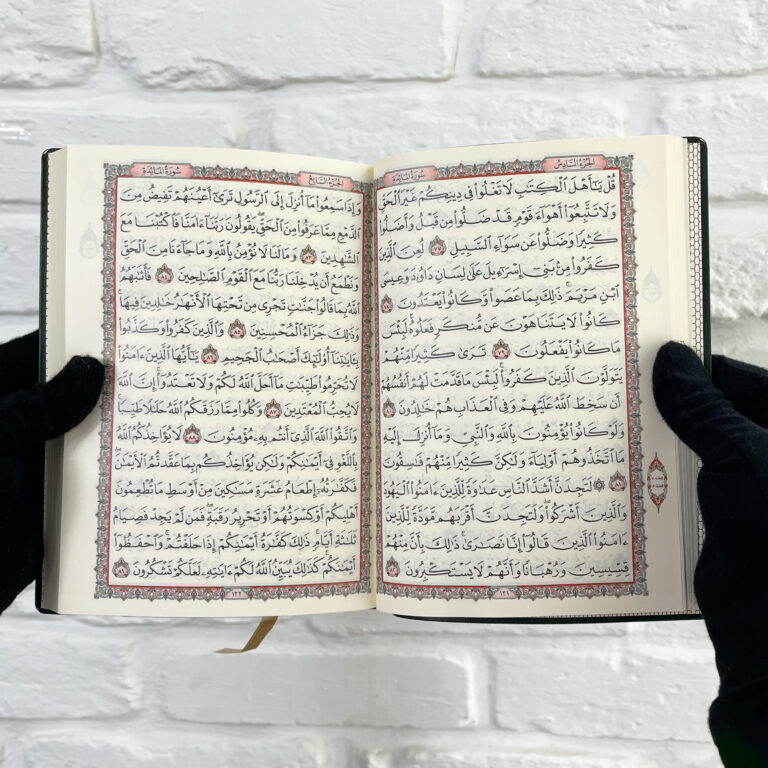 الجزء السادس
سورة المائدة
قُلْ يَٰٓأَهْلَ ٱلْكِتَٰبِ لَا تَغْلُوا۟ فِى دِينِكُمْ غَيْرَ ٱلْحَقِّ
وَلَا تَتَّبِعُوٓا۟ أَهْوَآءَ قَوْمٍ قَدْ ضَلُّوا۟ مِن قَبْلُ وَأَضَلُّوا۟
كَثِيرًا وَضَلُّوا۟ عَن سَوَآءِ ٱلسَّبِيلِ ٧٧ لُعِنَ ٱلَّذِينَ
كَفَرُوا۟ مِنۢ بَنِىٓ إِسْرَٰٓءِيلَ عَلَىٰ لِسَانِ دَاوُۥدَ وَعِيسَى
ٱبْنِ مَرْيَمَ ۚ ذَٰلِكَ بِمَا عَصَوا۟ وَّكَانُوا۟ يَعْتَدُونَ ٧٨
كَانُوا۟ لَا يَتَنَاهَوْنَ عَن مُّنكَرٍ فَعَلُوهُ ۚ لَبِئْسَ
مَا كَانُوا۟ يَفْعَلُونَ ٧٩ تَرَىٰ كَثِيرًا مِّنْهُمْ
يَتَوَلَّوْنَ ٱلَّذِينَ كَفَرُوا۟ ۚ لَبِئْسَ مَا قَدَّمَتْ لَهُمْ أَنفُسُهُمْ
أَن سَخِطَ ٱللَّهُ عَلَيْهِمْ وَفِى ٱلْعَذَابِ هُمْ خَٰلِدُونَ ٨٠
وَلَوْ كَانُوا۟ يُؤْمِنُونَ بِٱللَّهِ وَٱلنَّبِىِّ وَمَآ أُنزِلَ إِلَيْهِ
مَا ٱتَّخَذُوهُمْ أَوْلِيَآءَ وَلَٰكِنَّ كَثِيرًا مِّنْهُمْ فَٰسِقُونَ
٨١ ۞ لَتَجِدَنَّ أَشَدَّ ٱلنَّاسِ عَدَٰوَةً لِّلَّذِينَ ءَامَنُوا۟ ٱلْيَهُودَ
وَٱلَّذِينَ أَشْرَكُوا۟ ۖ وَلَتَجِدَنَّ أَقْرَبَهُم مَّوَدَّةً لِّلَّذِينَ
ءَامَنُوا۟ ٱلَّذِينَ قَالُوٓا۟ إِنَّا نَصَٰرَىٰ ۚ ذَٰلِكَ بِأَنَّ مِنْهُمْ
قِسِّيسِينَ وَرُهْبَانًا وَأَنَّهُمْ لَا يَسْتَكْبِرُونَ ٨٢
١٢١
الجزء السابع
سورة المائدة
وَإِذَا سَمِعُوا۟ مَآ أُنزِلَ إِلَى ٱلرَّسُولِ تَرَىٰٓ أَعْيُنَهُمْ تَفِيضُ مِنَ
ٱلدَّمْعِ مِمَّا عَرَفُوا۟ مِنَ ٱلْحَقِّ ۖ يَقُولُونَ رَبَّنَآ ءَامَنَّا فَٱكْتُبْنَا مَعَ
ٱلشَّٰهِدِينَ ٨٣ وَمَا لَنَا لَا نُؤْمِنُ بِٱللَّهِ وَمَا جَآءَنَا مِنَ ٱلْحَقِّ
وَنَطْمَعُ أَن يُدْخِلَنَا رَبُّنَا مَعَ ٱلْقَوْمِ ٱلصَّٰلِحِينَ ٨٤ فَأَثَٰبَهُمُ
ٱللَّهُ بِمَا قَالُوا۟ جَنَّٰتٍ تَجْرِى مِن تَحْتِهَا ٱلْأَنْهَٰرُ خَٰلِدِينَ فِيهَا ۚ
وَذَٰلِكَ جَزَآءُ ٱلْمُحْسِنِينَ ٨٥ وَٱلَّذِينَ كَفَرُوا۟ وَكَذَّبُوا۟
بِـَٔايَٰتِنَآ أُو۟لَٰٓئِكَ أَصْحَٰبُ ٱلْجَحِيمِ ٨٦ يَٰٓأَيُّهَا ٱلَّذِينَ ءَامَنُوا۟
لَا تُحَرِّمُوا۟ طَيِّبَٰتِ مَآ أَحَلَّ ٱللَّهُ لَكُمْ وَلَا تَعْتَدُوٓا۟ ۚ إِنَّ ٱللَّهَ
لَا يُحِبُّ ٱلْمُعْتَدِينَ ٨٧ وَكُلُوا۟ مِمَّا رَزَقَكُمُ ٱللَّهُ حَلَٰلًا طَيِّبًا ۚ
وَٱتَّقُوا۟ ٱللَّهَ ٱلَّذِىٓ أَنتُم بِهِۦ مُؤْمِنُونَ ٨٨ لَا يُؤَاخِذُكُمُ ٱللَّهُ
بِٱللَّغْوِ فِىٓ أَيْمَٰنِكُمْ وَلَٰكِن يُؤَاخِذُكُم بِمَا عَقَّدتُّمُ ٱلْأَيْمَٰنَ ۖ
فَكَفَّٰرَتُهُۥٓ إِطْعَامُ عَشَرَةِ مَسَٰكِينَ مِنْ أَوْسَطِ مَا تُطْعِمُونَ
أَهْلِيكُمْ أَوْ كِسْوَتُهُمْ أَوْ تَحْرِيرُ رَقَبَةٍ ۖ فَمَن لَّمْ يَجِدْ فَصِيَامُ
ثَلَٰثَةِ أَيَّامٍ ۚ ذَٰلِكَ كَفَّٰرَةُ أَيْمَٰنِكُمْ إِذَا حَلَفْتُمْ ۚ وَٱحْفَظُوٓا۟
أَيْمَٰنَكُمْ ۚ كَذَٰلِكَ يُبَيِّنُ ٱللَّهُ لَكُمْ ءَايَٰتِهِۦ لَعَلَّكُمْ تَشْكُرُونَ ٨٩
١٢٢